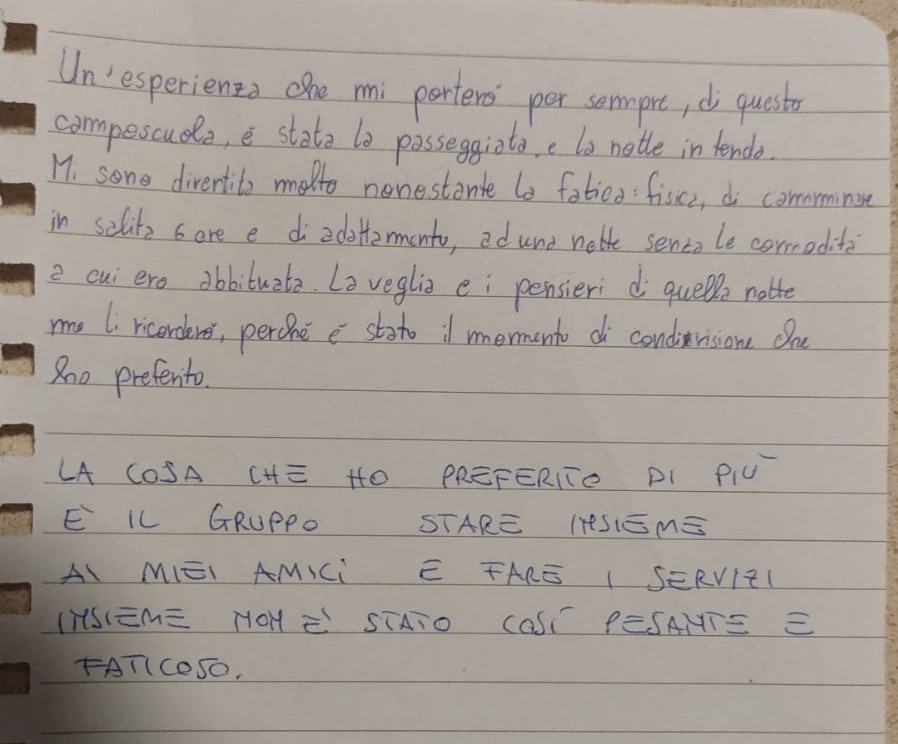 Un'esperienza che mi porterò per sempre, di questo
campescuola, è stata la passeggiata, e la notte in tenda.
Mi sono divertita molto nonostante la fatica: fisica, di camminare
in salita 6 ore e di adattamento, ad una notte senza le comodità
a cui ero abbituata. La veglia e i pensieri di quella notte
me li ricorderò, perché è stato il momento di condivisione che
ho preferito.
LA COSA CHE HO PREFERITO DI PIÙ
È IL GRUPPO STARE INSIEME
AI MIEI AMICI E FARE I SERVIZI
INSIEME NON È STATO COSÌ PESANTE E
FATICOSO.